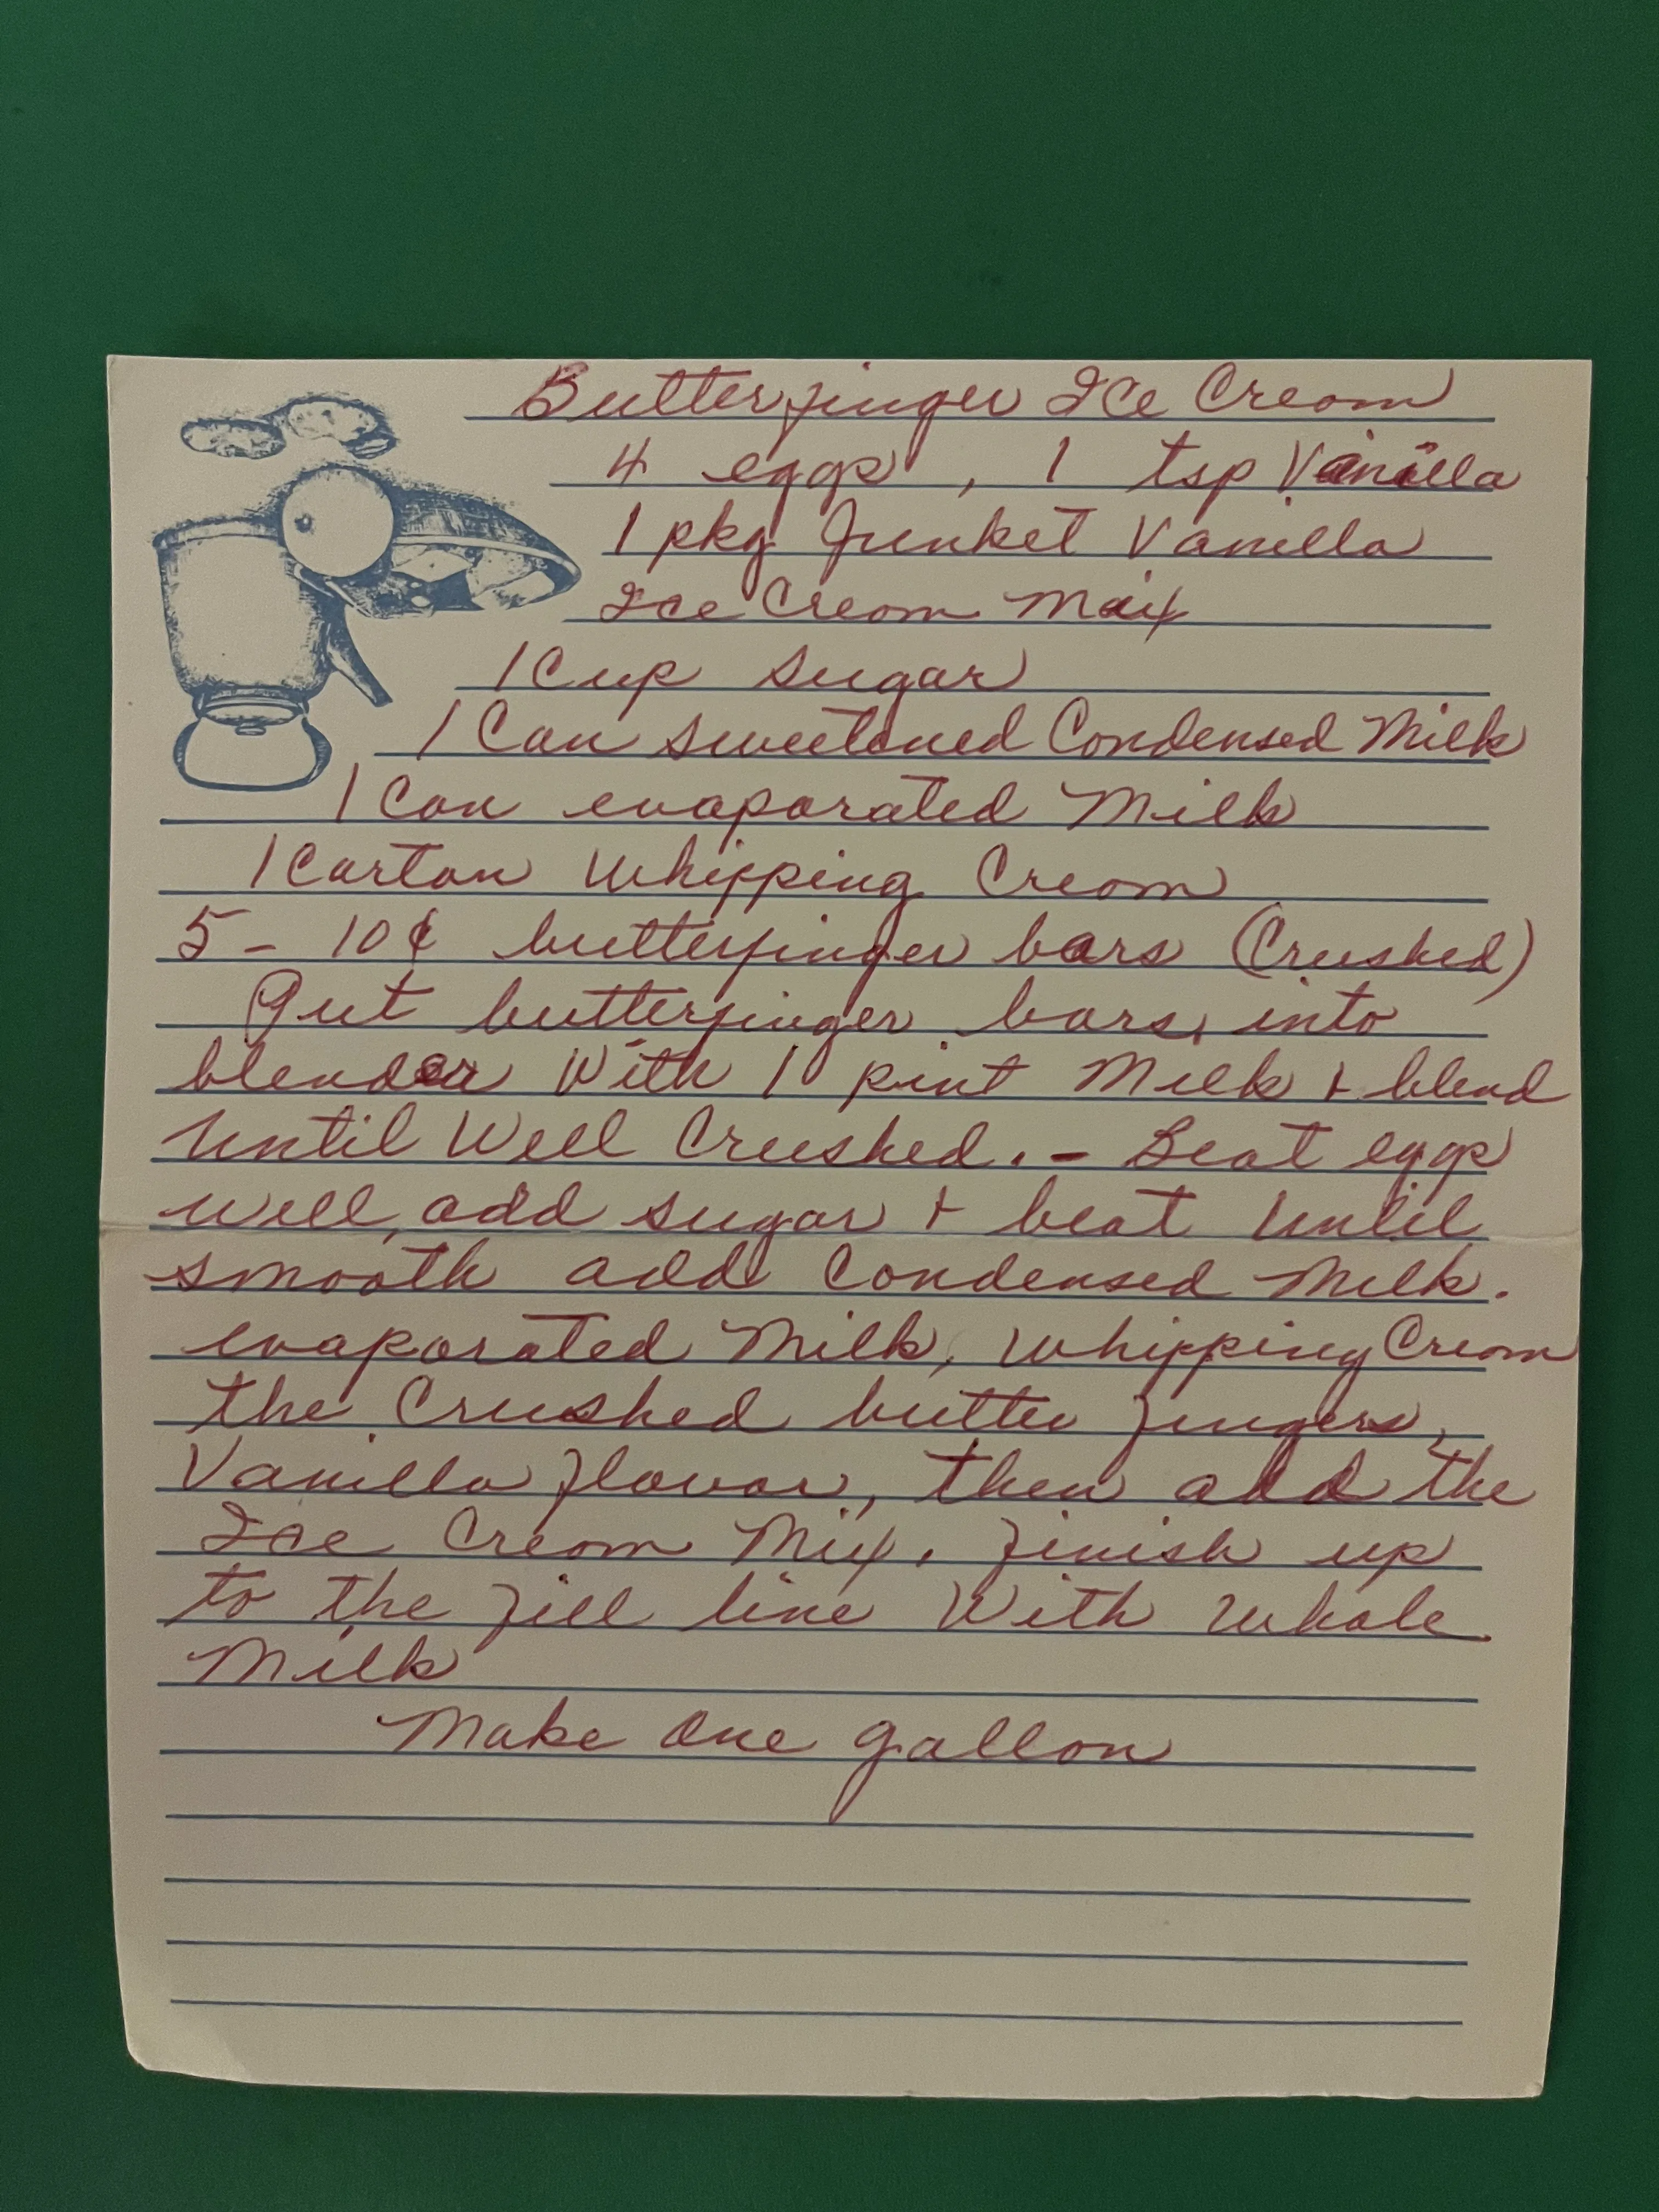 Butterfinger Ice Cream
4 eggs, 1 tsp Vanilla
1 pkg Junket Vanilla
Ice Cream Mix
1 Cup sugar
1 Can sweetened Condensed Milk
1 Can evaporated Milk
1 Carton Whipping Cream
5 - 10¢ butterfinger bars (Crushed)
Put butterfinger bars, into
blender With 1 pint Milk + blend
until Well Crushed. - Beat eggs
well, add sugar + beat until
smooth add Condensed Milk.
evaporated Milk, Whipping Cream
the Crushed butter fingers,
Vanilla flavor, then add the
Ice Cream Mix. finish up
to the fill line With Whole
Milk
Make One gallon